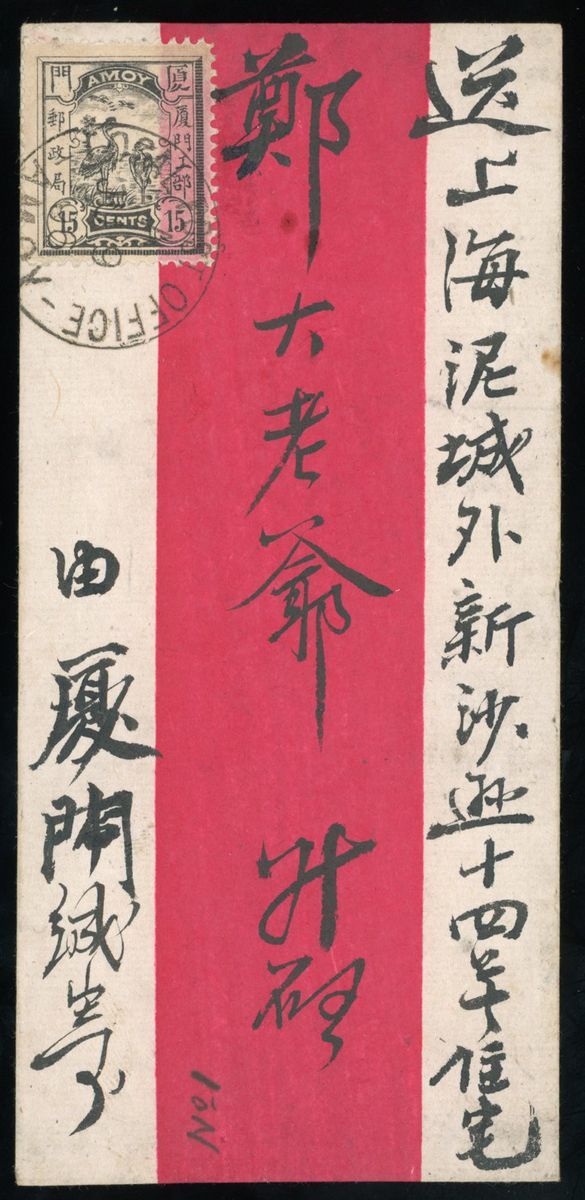 送上海泥城外新沙遜十四號住宅
鄭大老爺 升啓
由廈門緘寄
門 AMOY 厦
郵政局
厦門工部
15 CENTS 15
OFFICE